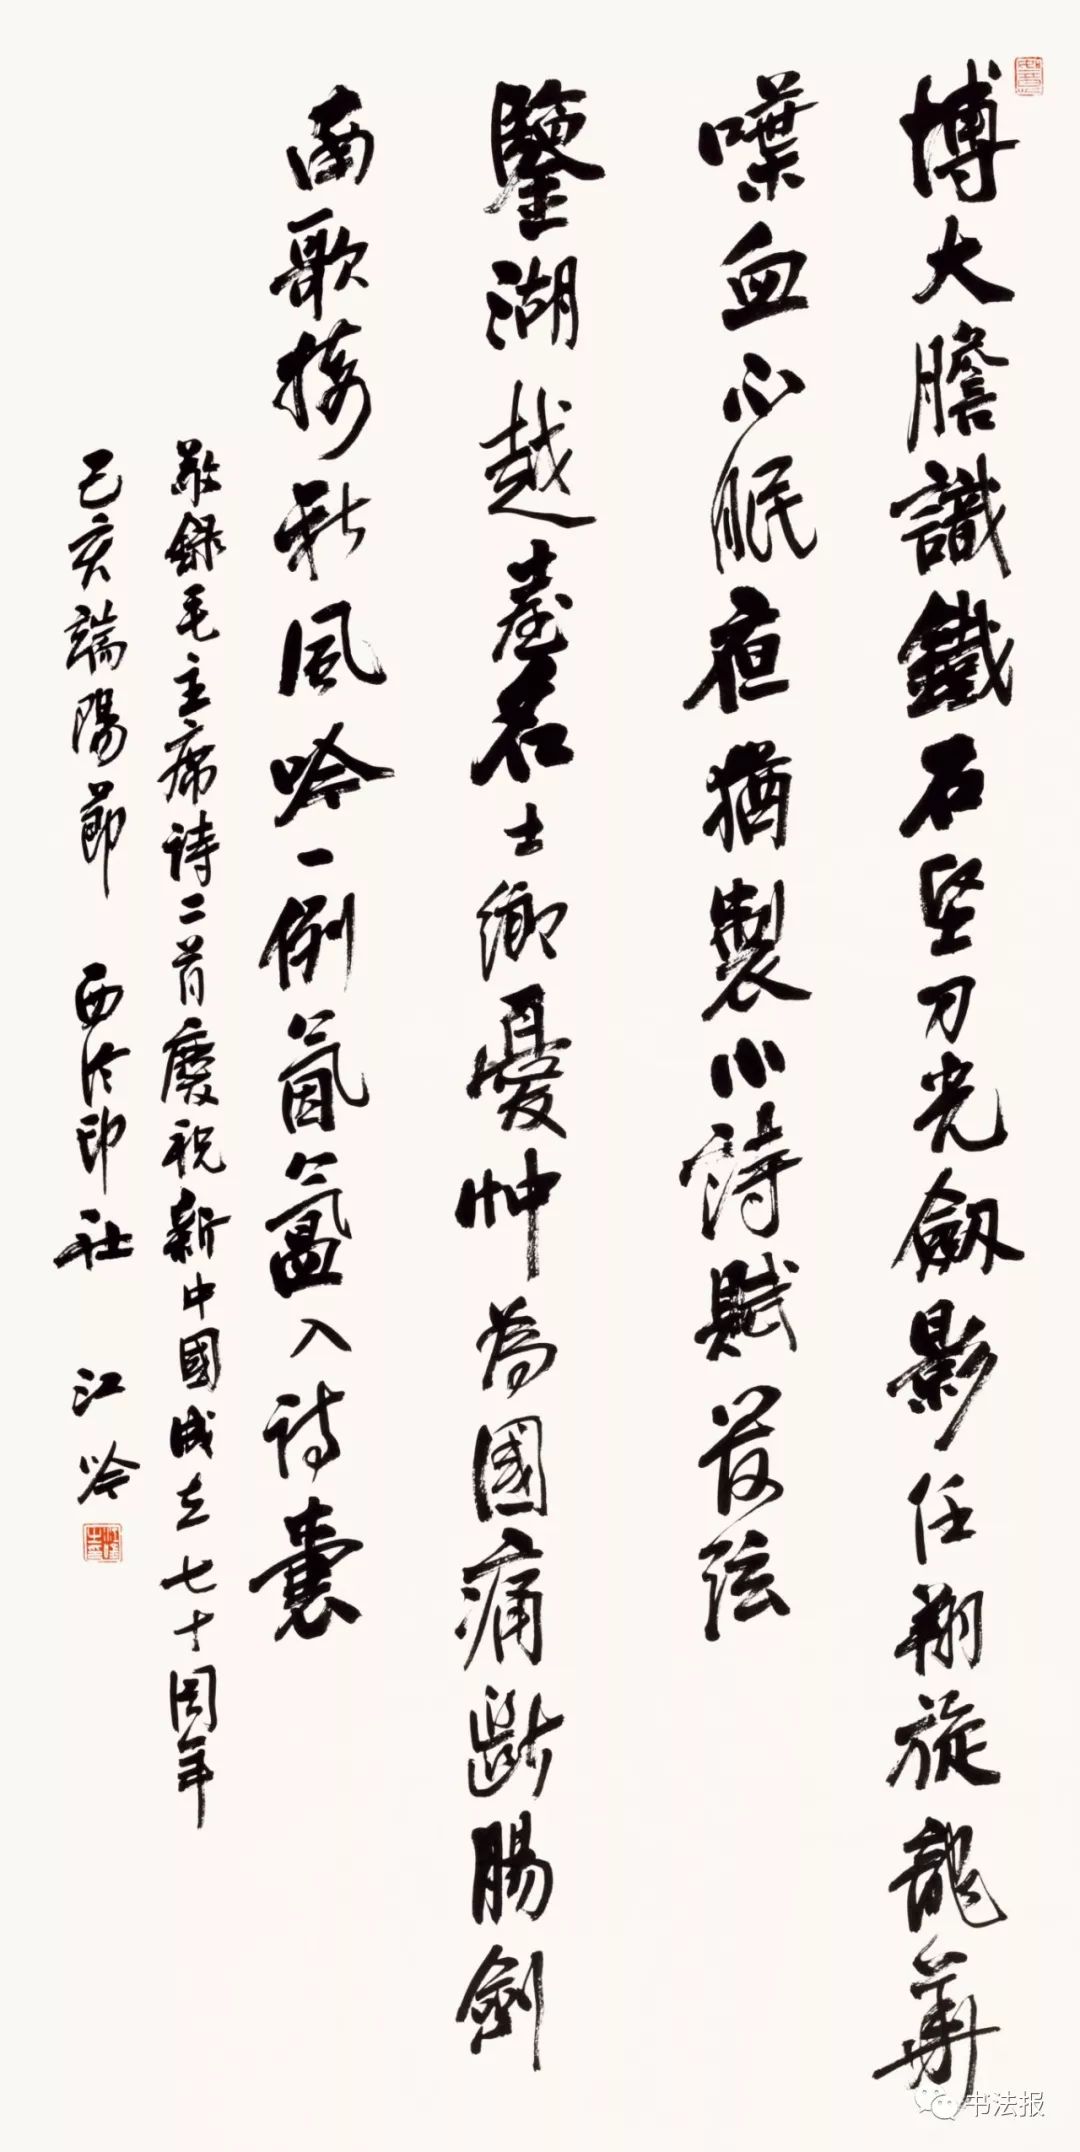 博大膽識鐵石堅刀光劔影任翔旋龍華
喋血心眠夜猶製小詩賦管弦
鑒湖越臺名士鄉憂忡為國痛斷腸劍
南歌接秋風吟一例氤氳入詩囊
敬錄毛主席詩二首慶祝新中國成立七十周年
己亥端陽節 西泠印社 江吟
书法报